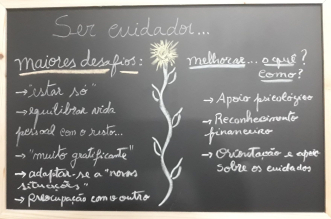 Ser cuidador...
maiores desafios:
→ "estar só"
→ equilibrar vida
pessoal com o resto...
→ "muito gratificante"
→ adaptar-se a "novas
situações"
→ Preocupação com o outro
melhorar... o quê?
Como?
→ Apoio psicológico
→ Reconhecimento
financeiro
→ Orientação e apoio
sobre os cuidados